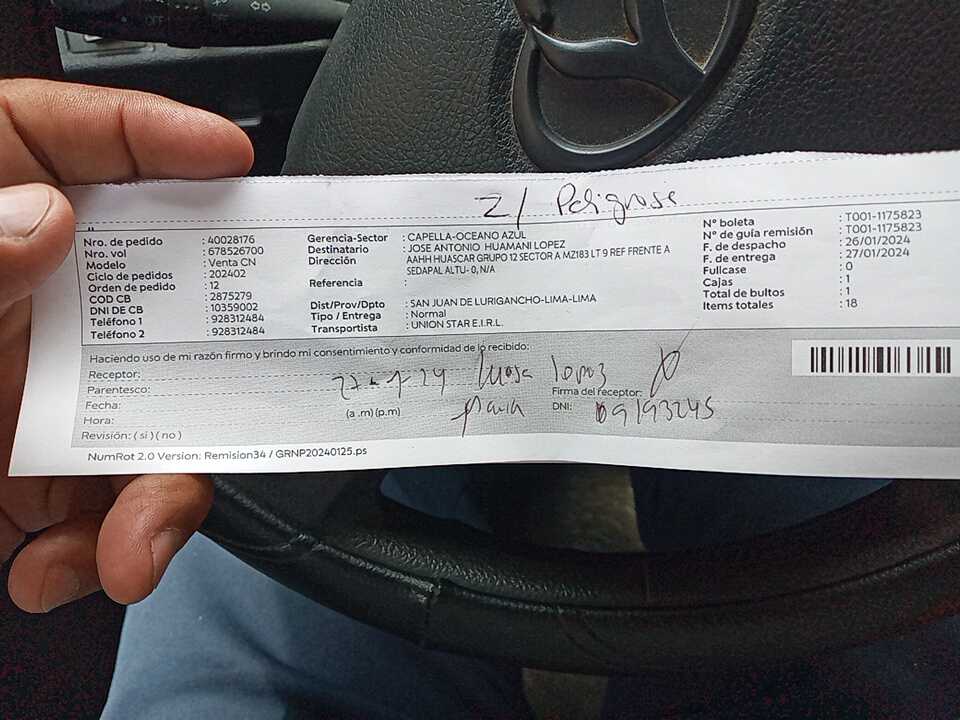 Z/ Peligrosa
Nro. de pedido : 40028176
Nro. vol : 678526700
Modelo : Venta CN
Ciclo de pedidos : 202402
Orden de pedido : 12
COD CB : 2875279
DNI DE CB : 10359002
Teléfono 1 : 928312484
Teléfono 2 : 928312484
Gerencia-Sector : CAPELLA-OCEANO AZUL
Destinatario : JOSE ANTONIO HUAMANI LOPEZ
Dirección : AAHH HUASCAR GRUPO 12 SECTOR A MZ183 LT 9 REF FRENTE A
SEDAPAL ALTU- 0, N/A
Referencia :
Dist/Prov/Dpto : SAN JUAN DE LURIGANCHO-LIMA-LIMA
Tipo / Entrega : Normal
Transportista : UNION STAR E.I.R.L.
N° boleta : T001-1175823
N° de guía remisión : T001-1175823
F. de despacho : 26/01/2024
F. de entrega : 27/01/2024
Fullcase : 0
Cajas : 1
Total de bultos : 1
Items totales : 18
Haciendo uso de mi razón firmo y brindo mi consentimiento y conformidad de lo recibido:
Receptor:
Parentesco: 27-1-24 lopez Firma del receptor:
Fecha: (a.m)(p.m) DNI: 09193245
Hora:
Revisión: ( si ) ( no )
NumRot 2.0 Version: Remision34 / GRNP20240125.ps